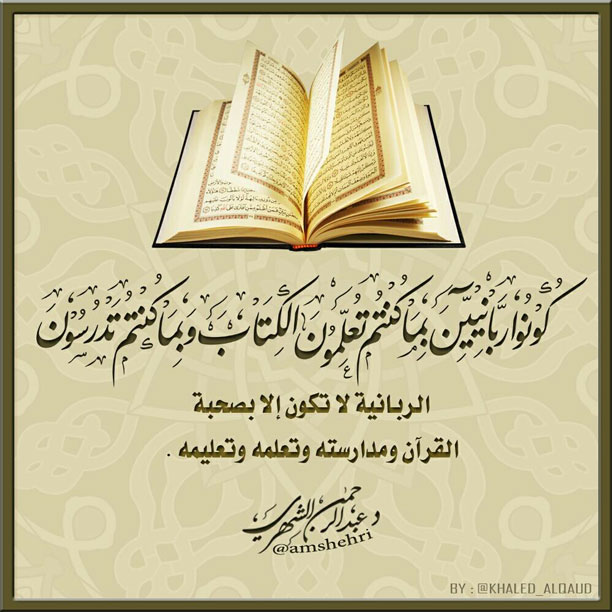 كُونُوا رَبَّانِيِّينَ بِمَا كُنتُمْ تُعَلِّمُونَ الْكِتَابَ وَبِمَا كُنتُمْ تَدْرُسُونَ
الربانية لا تكون إلا بصحبة
القرآن ومدارسته وتعلمه وتعليمه .
د عبدالرحمن الشهري
@amshehri
BY : @KHALED_ALQAUD